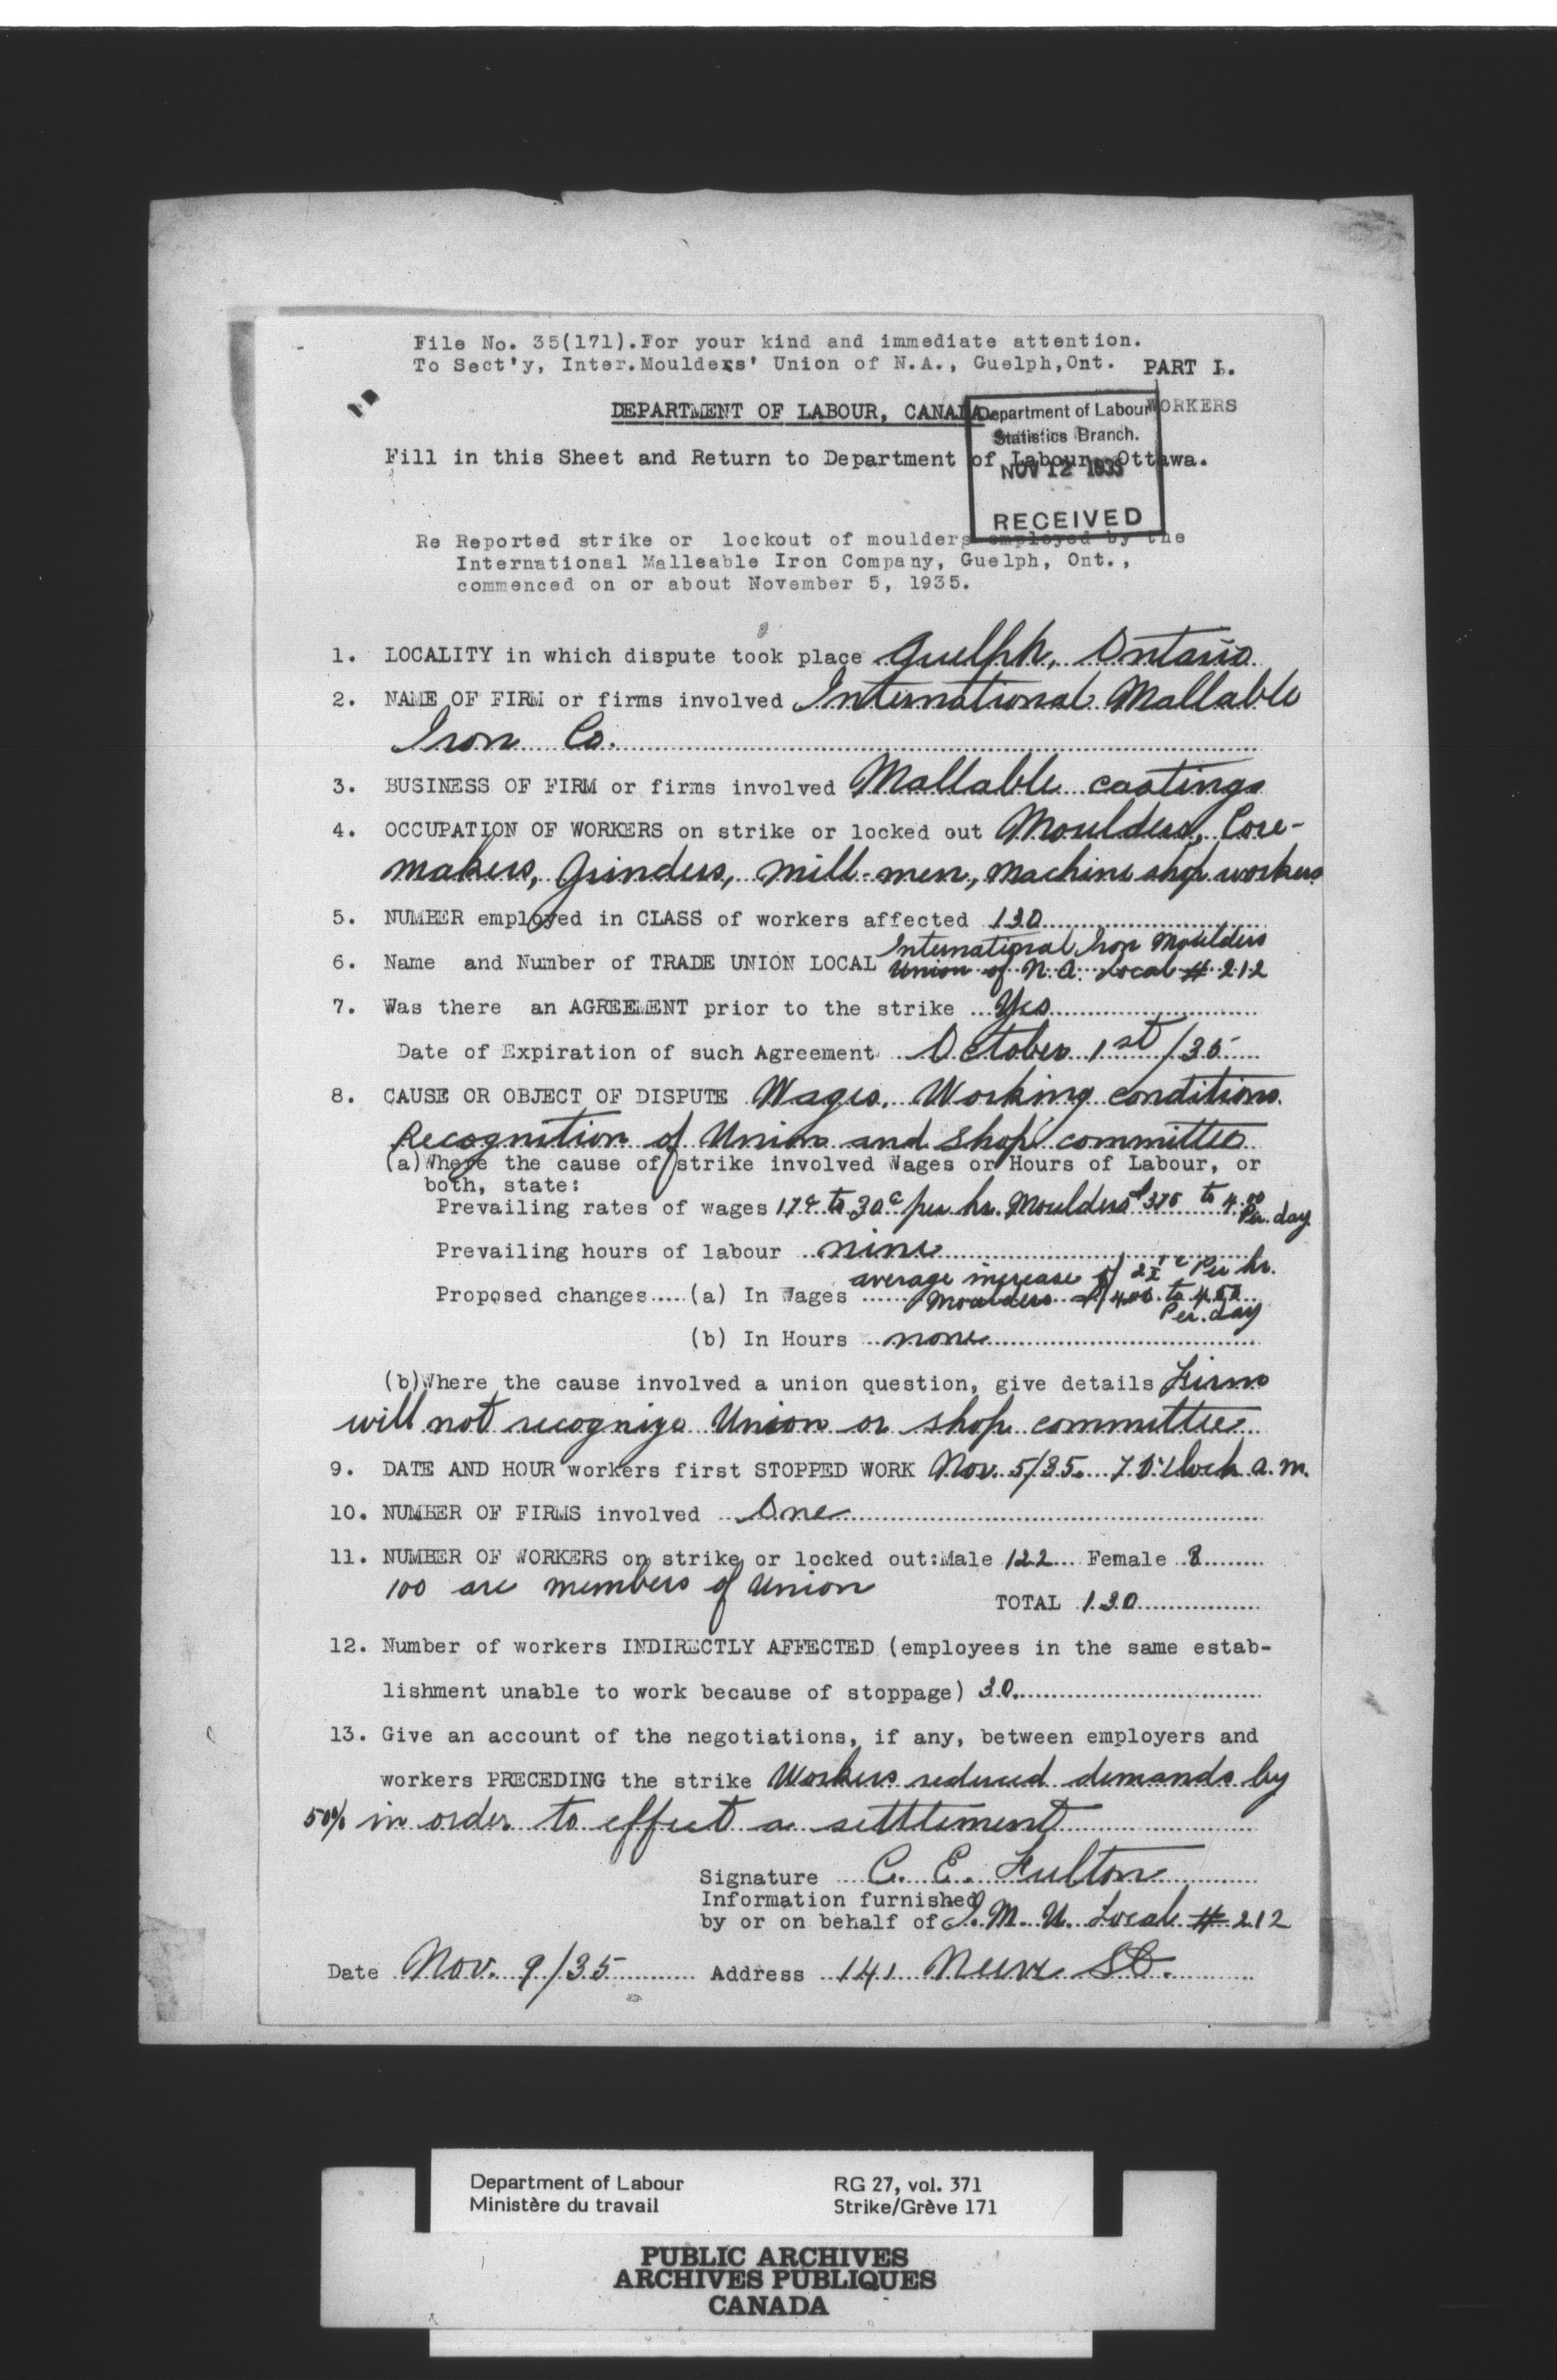 File No. 35(171).For your kind and immediate attention.
To Sect'y, Inter.Moulders' Union of N.A., Guelph,Ont.
PART I.
DEPARTMENT OF LABOUR, CANADA
WORKERS
Department of Labour
Statistics Branch.
NOV 12 1935
RECEIVED
Fill in this Sheet and Return to Department of Labour, Ottawa.
Re Reported strike or lockout of moulders employed by the
International Malleable Iron Company, Guelph, Ont.,
commenced on or about November 5, 1935.
1. LOCALITY in which dispute took place Guelph, Ontario
2. NAME OF FIRM or firms involved International Mallable
Iron Co.
3. BUSINESS OF FIRM or firms involved Mallable castings
4. OCCUPATION OF WORKERS on strike or locked out Moulders, Core-
makers, Grinders, Mill-men, Machine shop workers
5. NUMBER employed in CLASS of workers affected 130
6. Name and Number of TRADE UNION LOCAL International Iron Moulders
Union of N.A. Local # 212
7. Was there an AGREEMENT prior to the strike Yes
Date of Expiration of such Agreement October 1st/35
8. CAUSE OR OBJECT OF DISPUTE Wages. Working conditions.
Recognition of Union and Shop committee
(a)Where the cause of strike involved Wages or Hours of Labour, or
both, state:
Prevailing rates of wages 17¢ to 30¢ per hr. Moulders $3.75 to 4.00
Per. day
Prevailing hours of labour nine
Proposed changes.....(a) In Wages average increase of 2½¢ Per hr.
Moulders $4.00 to 4.50
Per. day
(b) In Hours none
(b)Where the cause involved a union question, give details Firm
will not recognize Union or shop committee
9. DATE AND HOUR workers first STOPPED WORK Nov. 5/35. 7 O'clock a.m.
10. NUMBER OF FIRMS involved One
11. NUMBER OF WORKERS on strike or locked out:Male 122 Female 8
100 are members of Union
TOTAL 130
12. Number of workers INDIRECTLY AFFECTED (employees in the same estab-
lishment unable to work because of stoppage) 30
13. Give an account of the negotiations, if any, between employers and
workers PRECEDING the strike Workers reduced demands by
50% in order to effect a setttement
Signature C. E. Fulton
Information furnished
by or on behalf of I.M.U. Local # 212
Date Nov. 9/35 Address 141 Neeve St.
Department of Labour
Ministère du travail
RG 27, vol. 371
Strike/Grève 171
PUBLIC ARCHIVES
ARCHIVES PUBLIQUES
CANADA